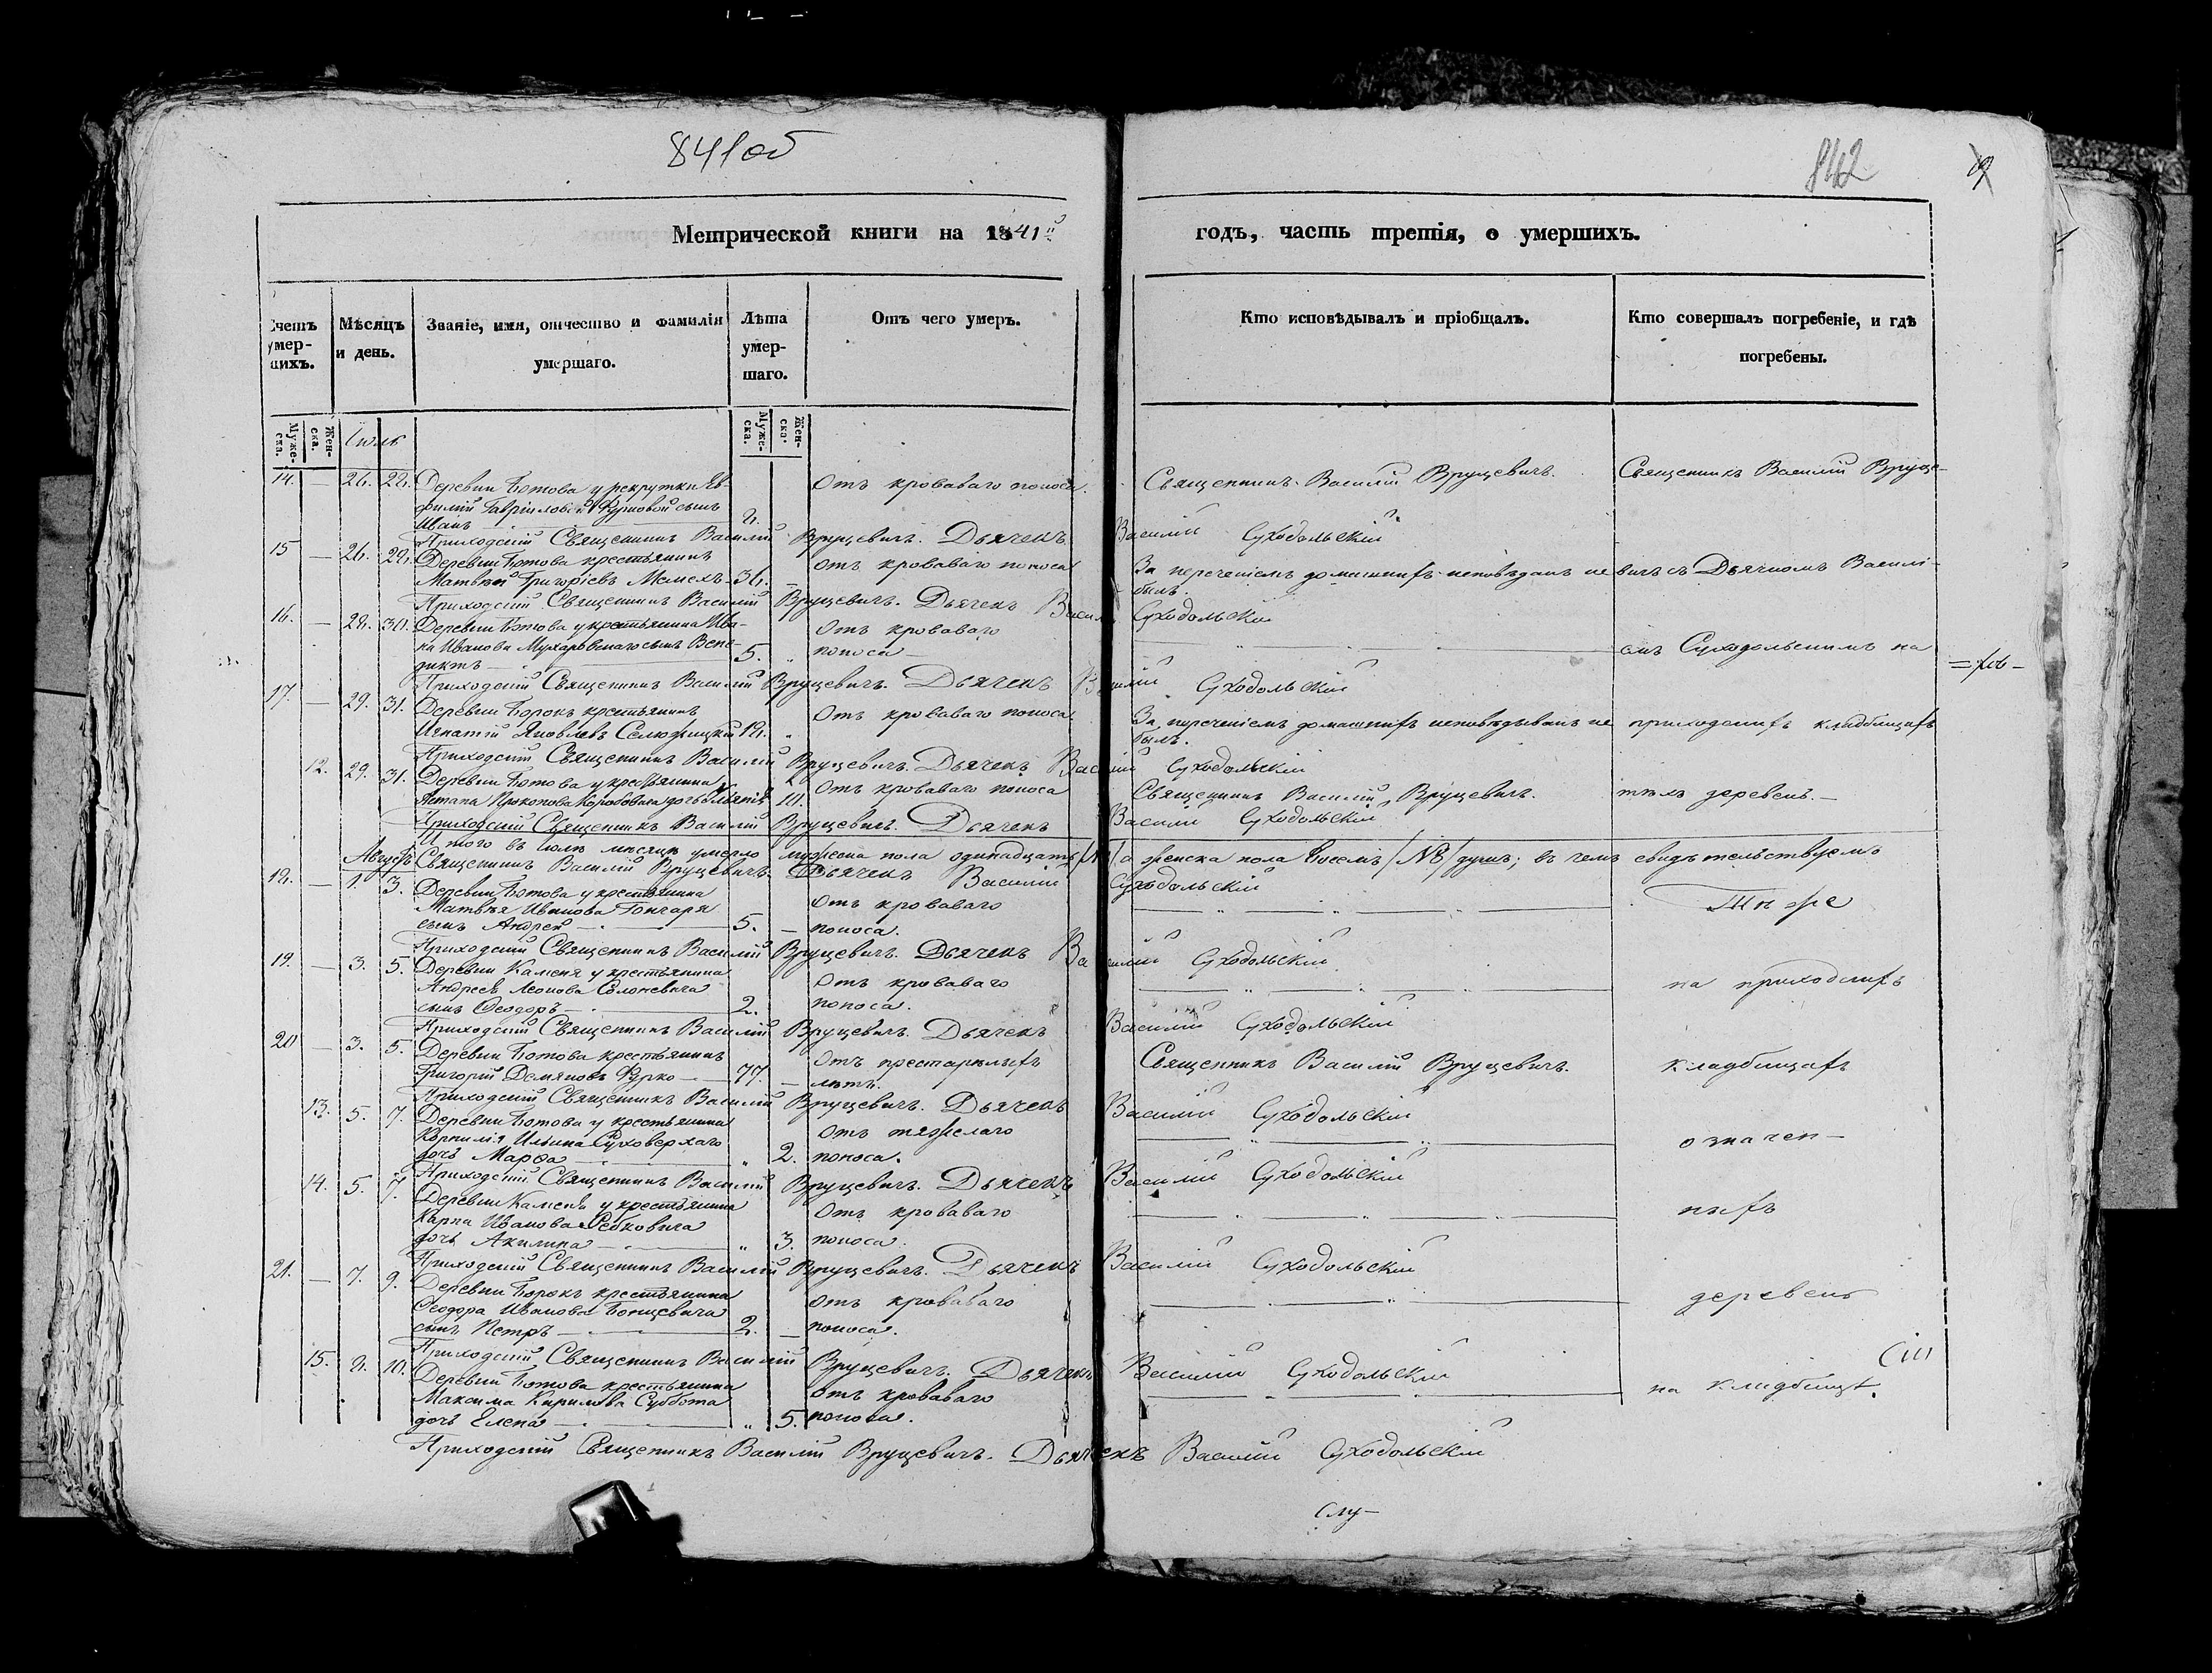 841об
842
9
Метрической книги на 1841й годъ, часть третія, о умершихъ.
Счетъ умер- шихъ.
Мѣсяцъ и день.
Званіе, имя, отчество и фамилія умершаго.
Лѣта умер- шаго.
Отъ чего умеръ.
Кто исповѣдывалъ и пріобщалъ.
Кто совершалъ погребеніе, и гдѣ погребены.
Муже- ска. Жен- ска.
Іюль
Муже- ска. Жен- ска.
14. — 26. 28. Деревни Ботова у рекрутки Ев- Отъ кроваваго поноса. Священникъ Василій Вруцевичъ. Священникъ Василій Вруце-
фиміи Гавріиловой сынъ
Иванъ 8.
Приходскій Священникъ Василій Вруцевичъ. Дьячекъ Василій Суходольскій
15 — 26. 28. Деревни Ботова крестьянинъ Отъ кроваваго поноса За реченіемъ домашнихъ исповѣданъ не вичъ съ Дьячкомъ Василі-
Матвей Григоріевъ 36. — былъ.
Приходскій Священникъ Василій Вруцевичъ. Дьячекъ Василій Суходольскій
16. — 28. 30. Деревни Ботова у крестьянина Ива- Отъ кроваваго
на Иванова сынъ Вене- 5. „ поноса — емъ Суходольскимъ на
диктъ —
Приходскій Священникъ Василій Вруцевичъ. Дьячекъ Василій Суходольскій
17. — 29. 31. Деревни Борокъ крестьянинъ Отъ кроваваго поноса За реченіемъ домашнихъ исповѣдыванъ не приходскихъ кладбищахъ
Игнатій Яковлевъ 18. „ былъ.
Приходскій Священникъ Василій Вруцевичъ. Дьячекъ Василій Суходольскій
12. 29. 31. Деревни Ботова у крестьянина Отъ кроваваго поноса Священникъ Василій Вруцевичъ. тѣхъ деревень. —
Прокопова дочь 10.
Приходскій Священникъ Василій Вруцевичъ. Дьячекъ Василій Суходольскій
Итого въ Іюлѣ мѣсяцѣ умерло мужеска пола одинадцать а женска пола восемь /№8/ душъ; въ чемъ свидѣтельствуемъ
Августъ Священникъ Василій Вруцевичъ. Дьячекъ Василій Суходольскій
18. — 1. 3. Деревни Ботова у крестьянина Отъ кроваваго Тѣже
Матвѣя Иванова Гончара
сынъ Андрей — 5. — поноса.
Приходскій Священникъ Василій Вруцевичъ. Дьячекъ Василій Суходольскій
19. — 3. 5. Деревни Каменя у крестьянина Отъ кроваваго на приходскихъ
Андрея Леонова Солоневича
сынъ Ѳеодоръ — 2. поноса.
Приходскій Священникъ Василій Вруцевичъ. Дьячекъ Василій Суходольскій
20 — 3. 5. Деревни Ботова крестьянинъ Отъ престарѣлыхъ Священникъ Василій Вруцевичъ. кладбищахъ
Григорій Демяновъ Фурко — 77. — лѣтъ.
Приходскій Священникъ Василій Вруцевичъ. Дьячекъ Василій Суходольскій
13. 5. 7. Деревни Ботова у крестьянина Отъ тяжелаго означен-
Корнилія Ильина Суховерхаго
дочь Марѳа — „ 2. поноса.
Приходскій Священникъ Василій Вруцевичъ. Дьячекъ Василій Суходольскій
14. 5. 7. Деревни Каменя у крестьянина Отъ кроваваго ныхъ
Карпа Иванова
дочь Акилина — „ 3. поноса.
Приходскій Священникъ Василій Вруцевичъ. Дьячекъ Василій Суходольскій
21. — 7. 9. Деревни Борокъ крестьянина Отъ кроваваго деревень
Ѳеодора Иванова
сынъ Петръ — 2. — поноса.
Приходскій Священникъ Василій Вруцевичъ. Дьячекъ Василій Суходольскій
15. 8. 10. Деревни Ботова крестьянина Отъ кроваваго на кладбищѣ.
Максима Кирилова Суббота
дочь Елена — „ 5. поноса.
Приходскій Священникъ Василій Вруцевичъ. Дьячекъ Василій Суходольскій
Слу-